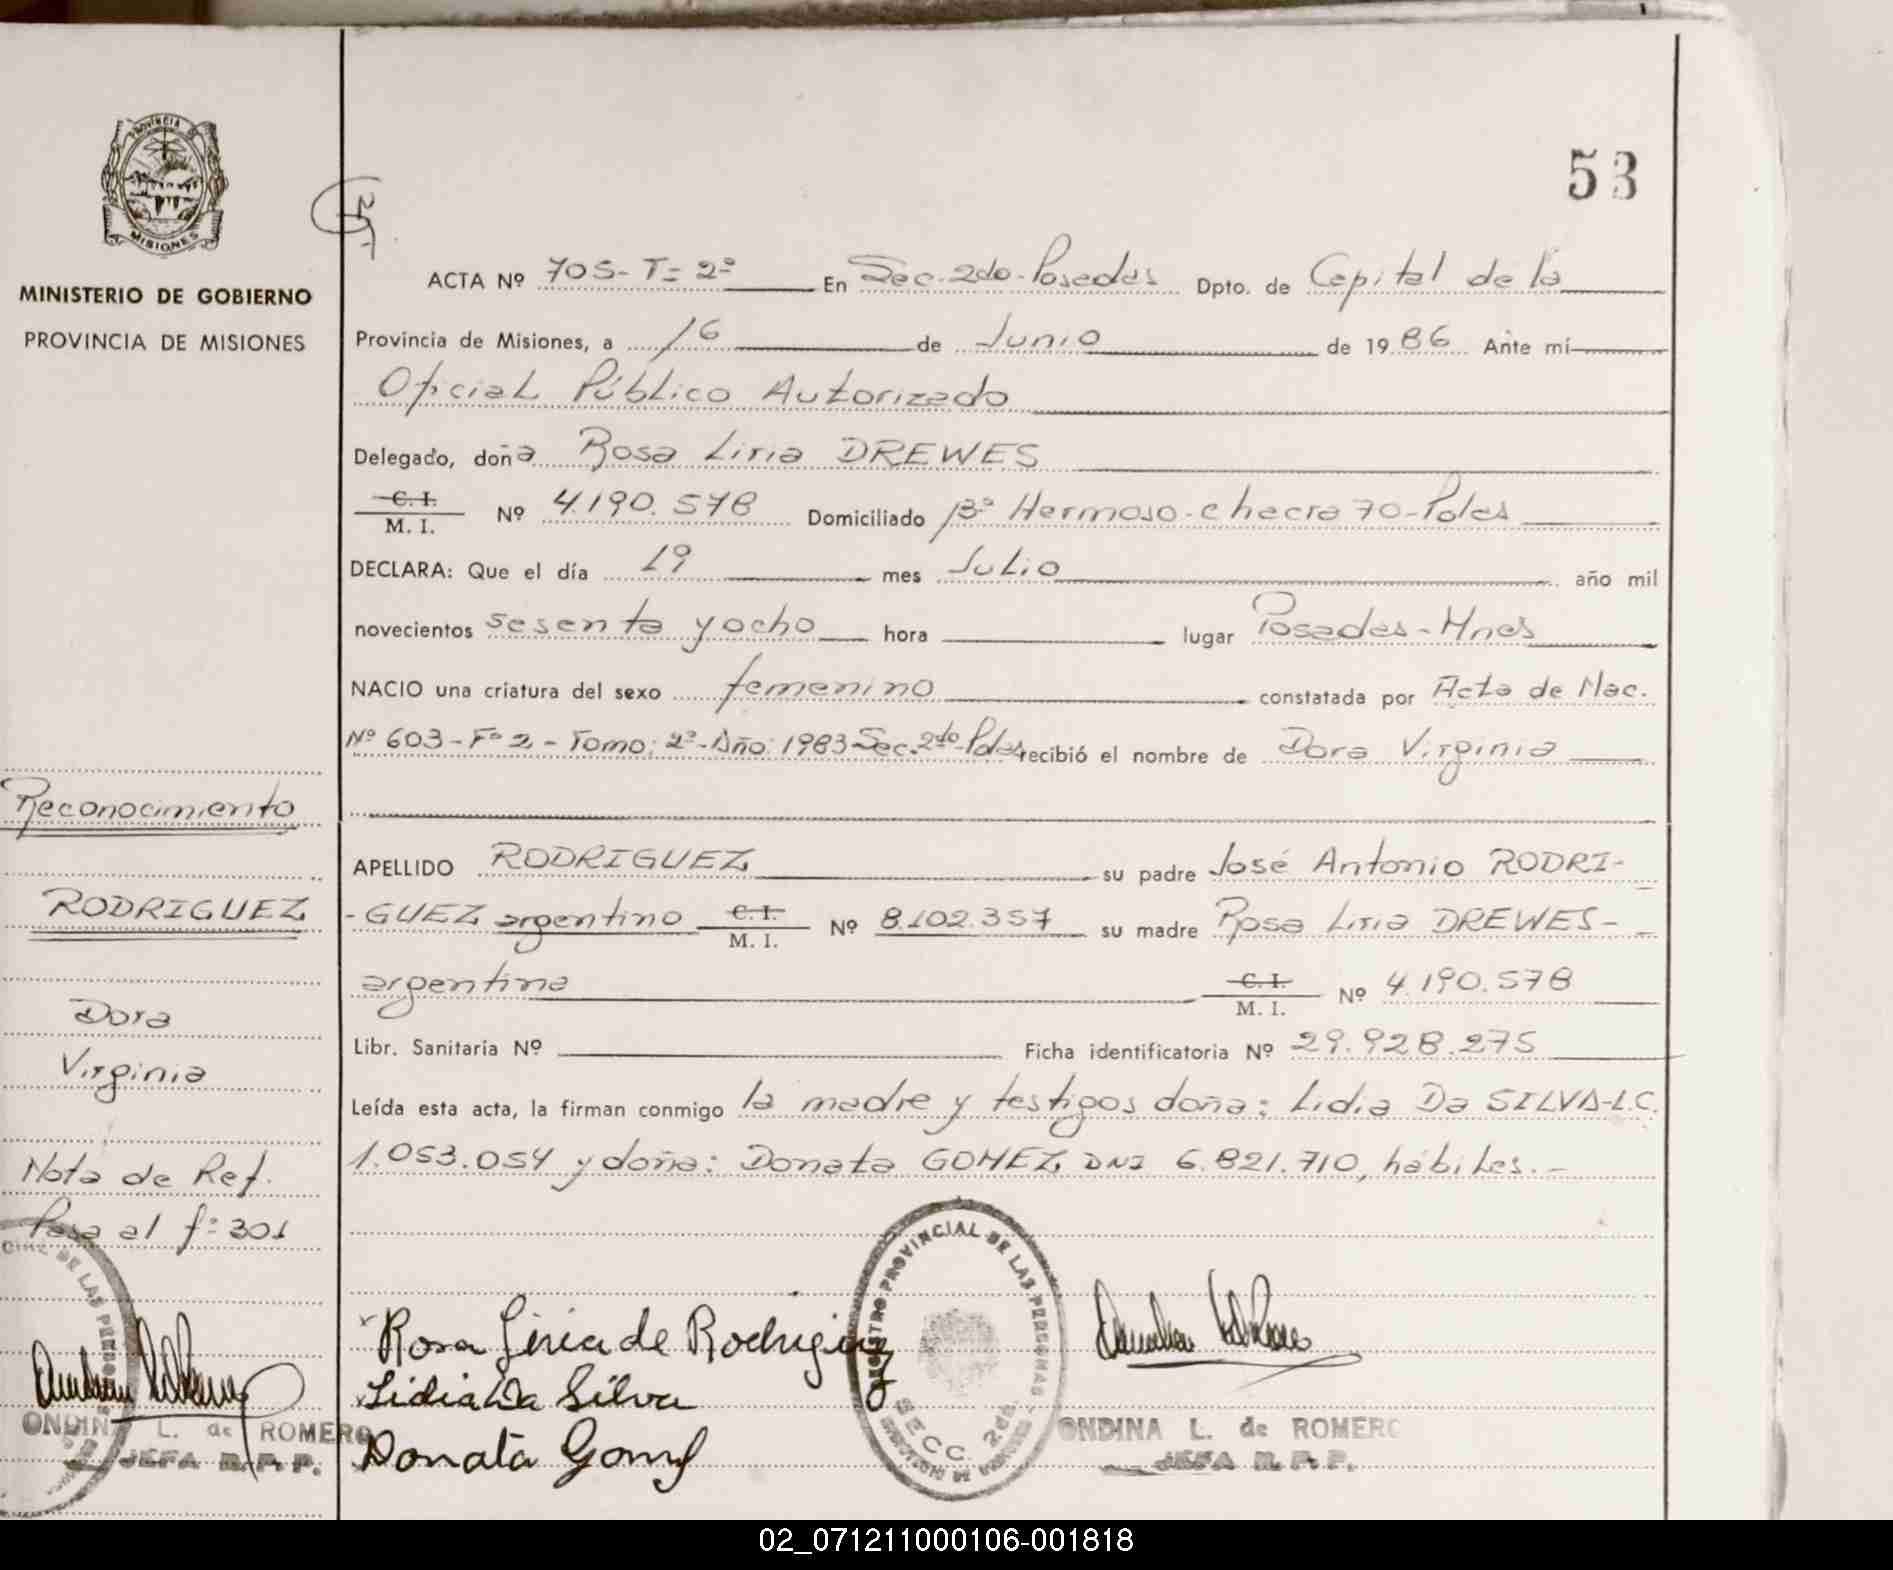 53
PROVINCIA DE
MISIONES
MINISTERIO DE GOBIERNO
PROVINCIA DE MISIONES
ACTA Nº 705-T=2º En Sec. 2do-Posadas Dpto. de Capital de la
Provincia de Misiones, a 16 de Junio de 1986 Ante mí
Oficial Público Autorizado
Delegado, doña Rosa Liria DREWES
C. I.
M. I. Nº 4.190.578 Domiciliado Bº Hermoso-chacra 70-Pdas
DECLARA: Que el día 19 mes Julio año mil
novecientos sesenta y ocho hora lugar Posadas-Mnes
NACIO una criatura del sexo femenino constatada por Acta de Nac.
Nº 603-Fº2-Tomo: 2º-Año: 1983-Sec. 2do-Pdas recibió el nombre de Dora Virginia
APELLIDO RODRIGUEZ su padre José Antonio RODRI-
-GUEZ argentino C. I.
M. I. Nº 8.102.357 su madre Rosa Liria DREWES-
argentina C. I.
M. I. Nº 4.190.578
Libr. Sanitaria Nº Ficha identificatoria Nº 29.928.275
Leída esta acta, la firman conmigo la madre y testigos doña: Lidia Da SILVA-L.C.
1.053.054 y doña: Donata GOMEZ DNI 6.821.710, hábiles.-
Reconocimiento
RODRIGUEZ
Dora
Virginia
Nota de Ref.
Pasa al fº 301
DE LAS PERSONAS
ONDINA L. de ROMERO
JEFA R. P. P.
Rosa Liria de Rodriguez
Lidia Da Silva
Donata Gomez
REGISTRO PROVINCIAL DE LAS PERSONAS
SECC. 2da.
ONDINA L. de ROMERO
JEFA R. P. P.
02_071211000106-001818